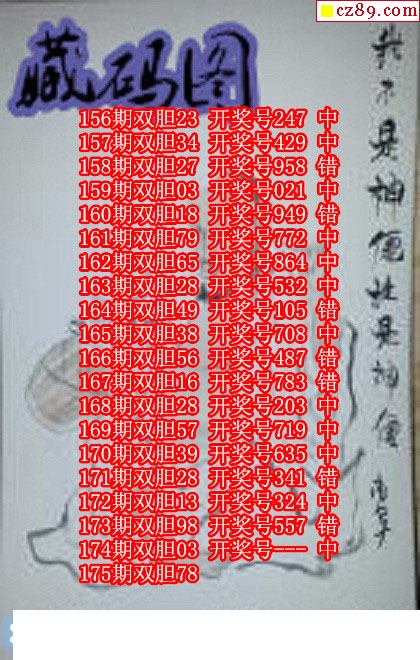 cz89.com
藏码图
156期双胆23 开奖号247 中
157期双胆34 开奖号429 中
158期双胆27 开奖号958 错
159期双胆03 开奖号021 中
160期双胆18 开奖号949 错
161期双胆79 开奖号772 中
162期双胆65 开奖号864 中
163期双胆28 开奖号532 中
164期双胆49 开奖号105 错
165期双胆38 开奖号708 中
166期双胆56 开奖号487 错
167期双胆16 开奖号783 错
168期双胆28 开奖号203 中
169期双胆57 开奖号719 中
170期双胆39 开奖号635 中
171期双胆28 开奖号341 错
172期双胆13 开奖号324 中
173期双胆98 开奖号557 错
174期双胆03 开奖号--- 中
175期双胆78
我不是神
是神